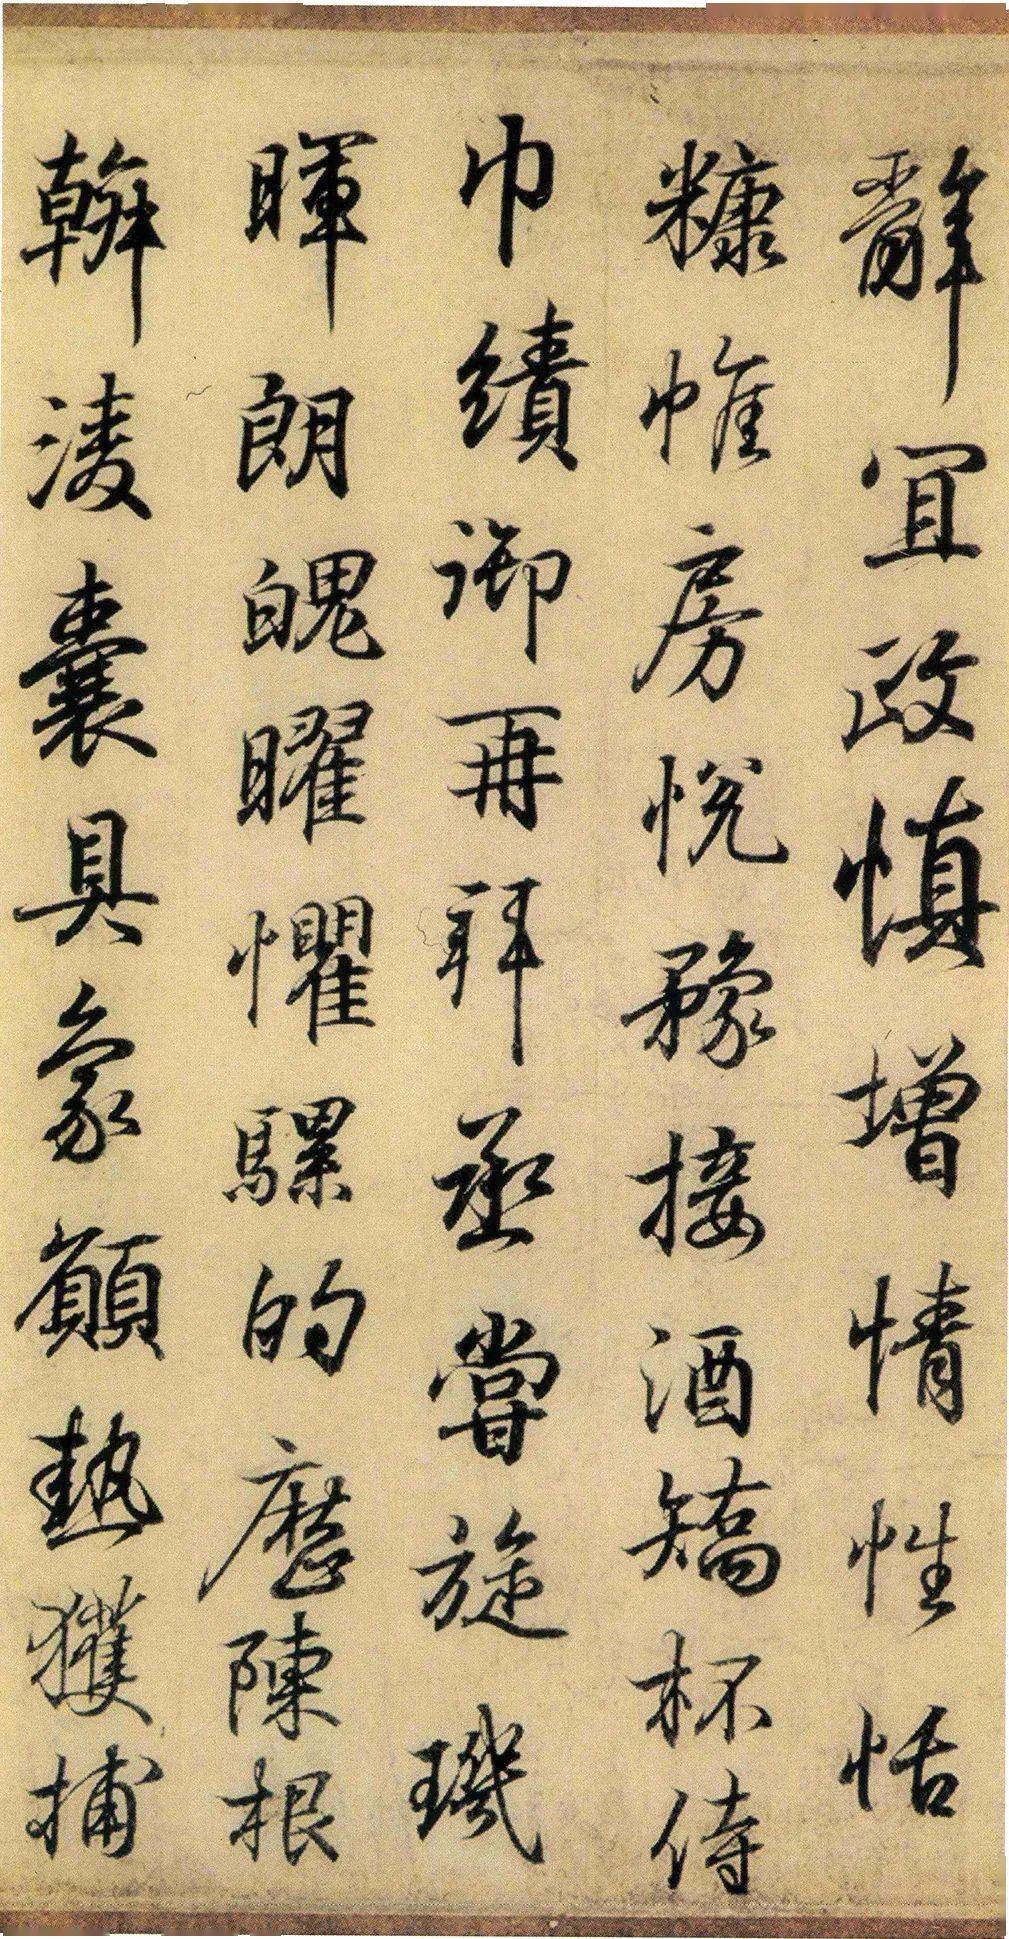 辭宜政慎增情性恬
糠帷房悅豫接酒矯杯侍
巾績御再拜烝嘗旋璣
暉朗魄曜懼騾的歷陳根
斡淩囊具象顧熱獲捕